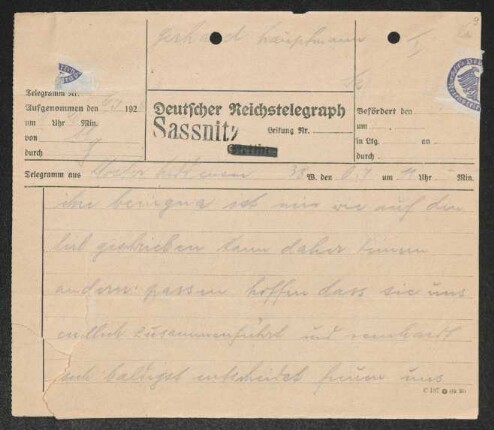 Gerhart Hauptmann
Telegramm Nr.
Aufgenommen den 192
um Uhr Min.
von
durch
Deutscher Reichstelegraph
Sassnitz
Leitung Nr.
Befördert den
um
in Ltg. an
durch
Telegramm aus Kloster 38 W. den um 11 Uhr Min.
ihre ist mir wie auf den
leib geschrieben kann daher keinem
anderen passen hoffen dass sie uns
endlich zusammenführt und reinhardt
sich baldigst entscheidet freuen uns
C 187